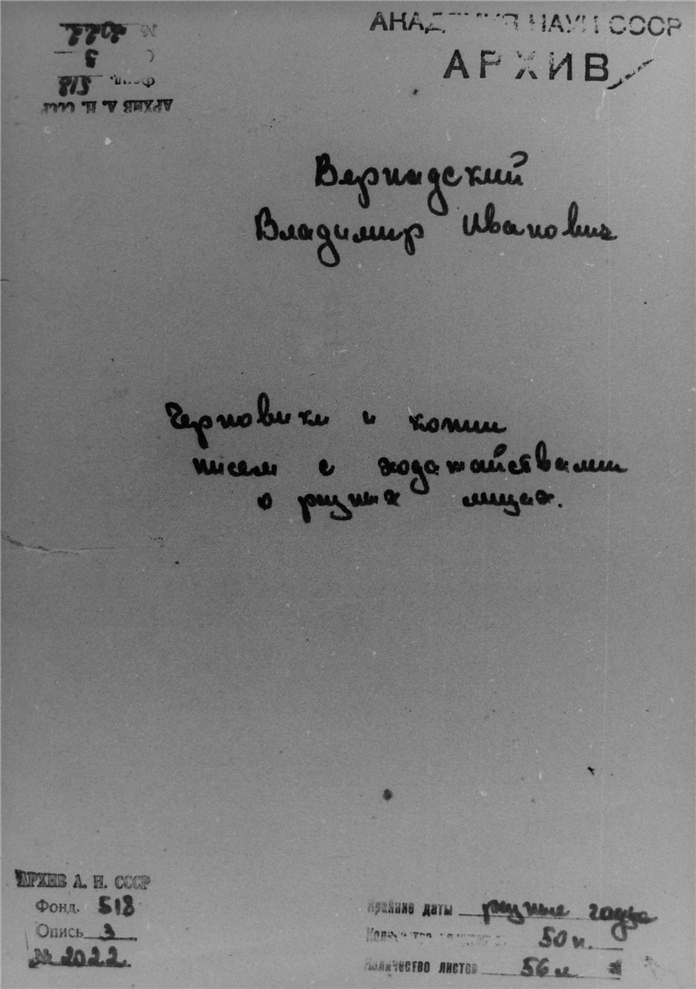 АКАДЕМИЯ НАУК СССР
АРХИВ
АРХИВ А. Н. СССР
Фонд. 518
3
№ 2022
Вернадский
Владимир Иванович
Черновики и копии
писем с ходатайствами
о разных лицах.
АРХИВ А. Н. СССР
Фонд. 518
Опись 3
№ 2022
Крайние даты разные годы
Количество 50 п.
Количество листов 56 л